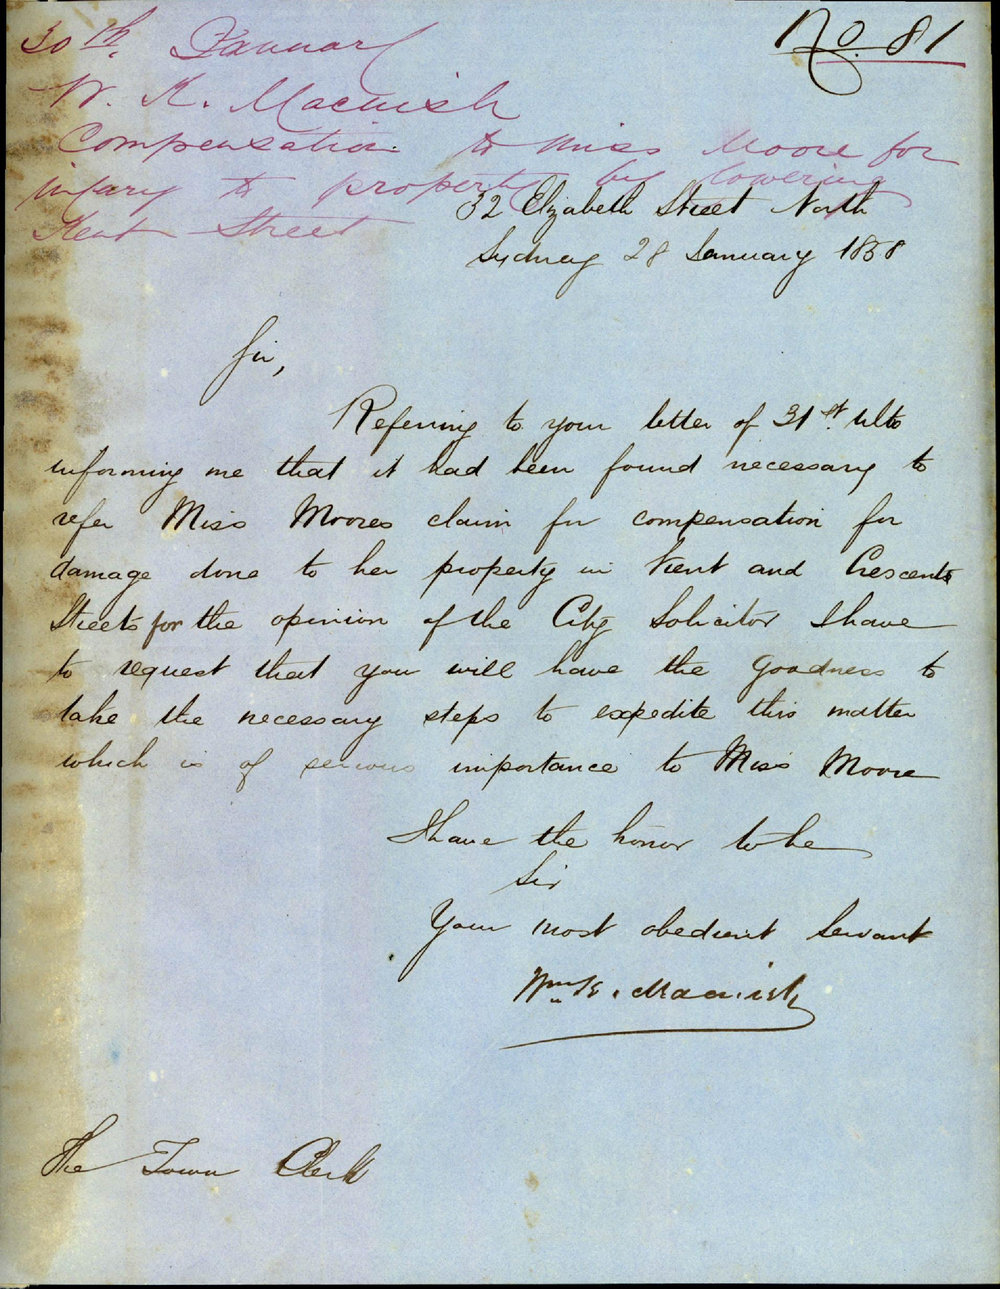 No. 81
30th January
W. K. Macnish
Compensation to Miss Moore for
injury to property by lowering
Kent Street
32 Elizabeth Street North
Sydney 28 January 1858
Sir,
Referring to your letter of 31st. Ulto
informing me that it had been found necessary to
refer Miss Moores claim for compensation for
damage done to her property in Kent and Crescent
Streets for the opinion of the City Solicitor I have
to request that you will have the goodness to
take the necessary steps to expedite this matter
which is of serious importance to Miss Moore
I have the honor to be
Sir
Your most obedient Servant
Wm K. Macnish
The Town Clerk